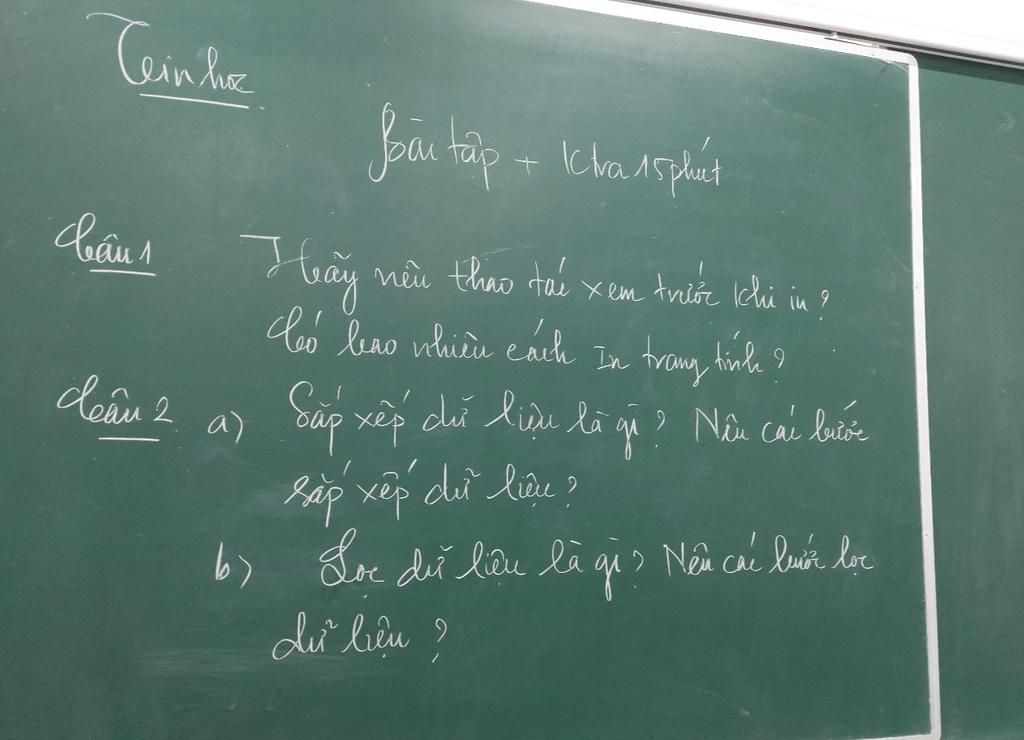 Tin học
Bài tập + Ktra 15 phút
Câu 1 Hãy nêu thao tác xem trước khi in?
Có bao nhiêu cách In trang tính?
Câu 2 a) Sắp xếp dữ liệu là gì? Nêu các bước
sắp xếp dữ liệu?
b) Lọc dữ liệu là gì? Nêu các bước lọc
dữ liệu?